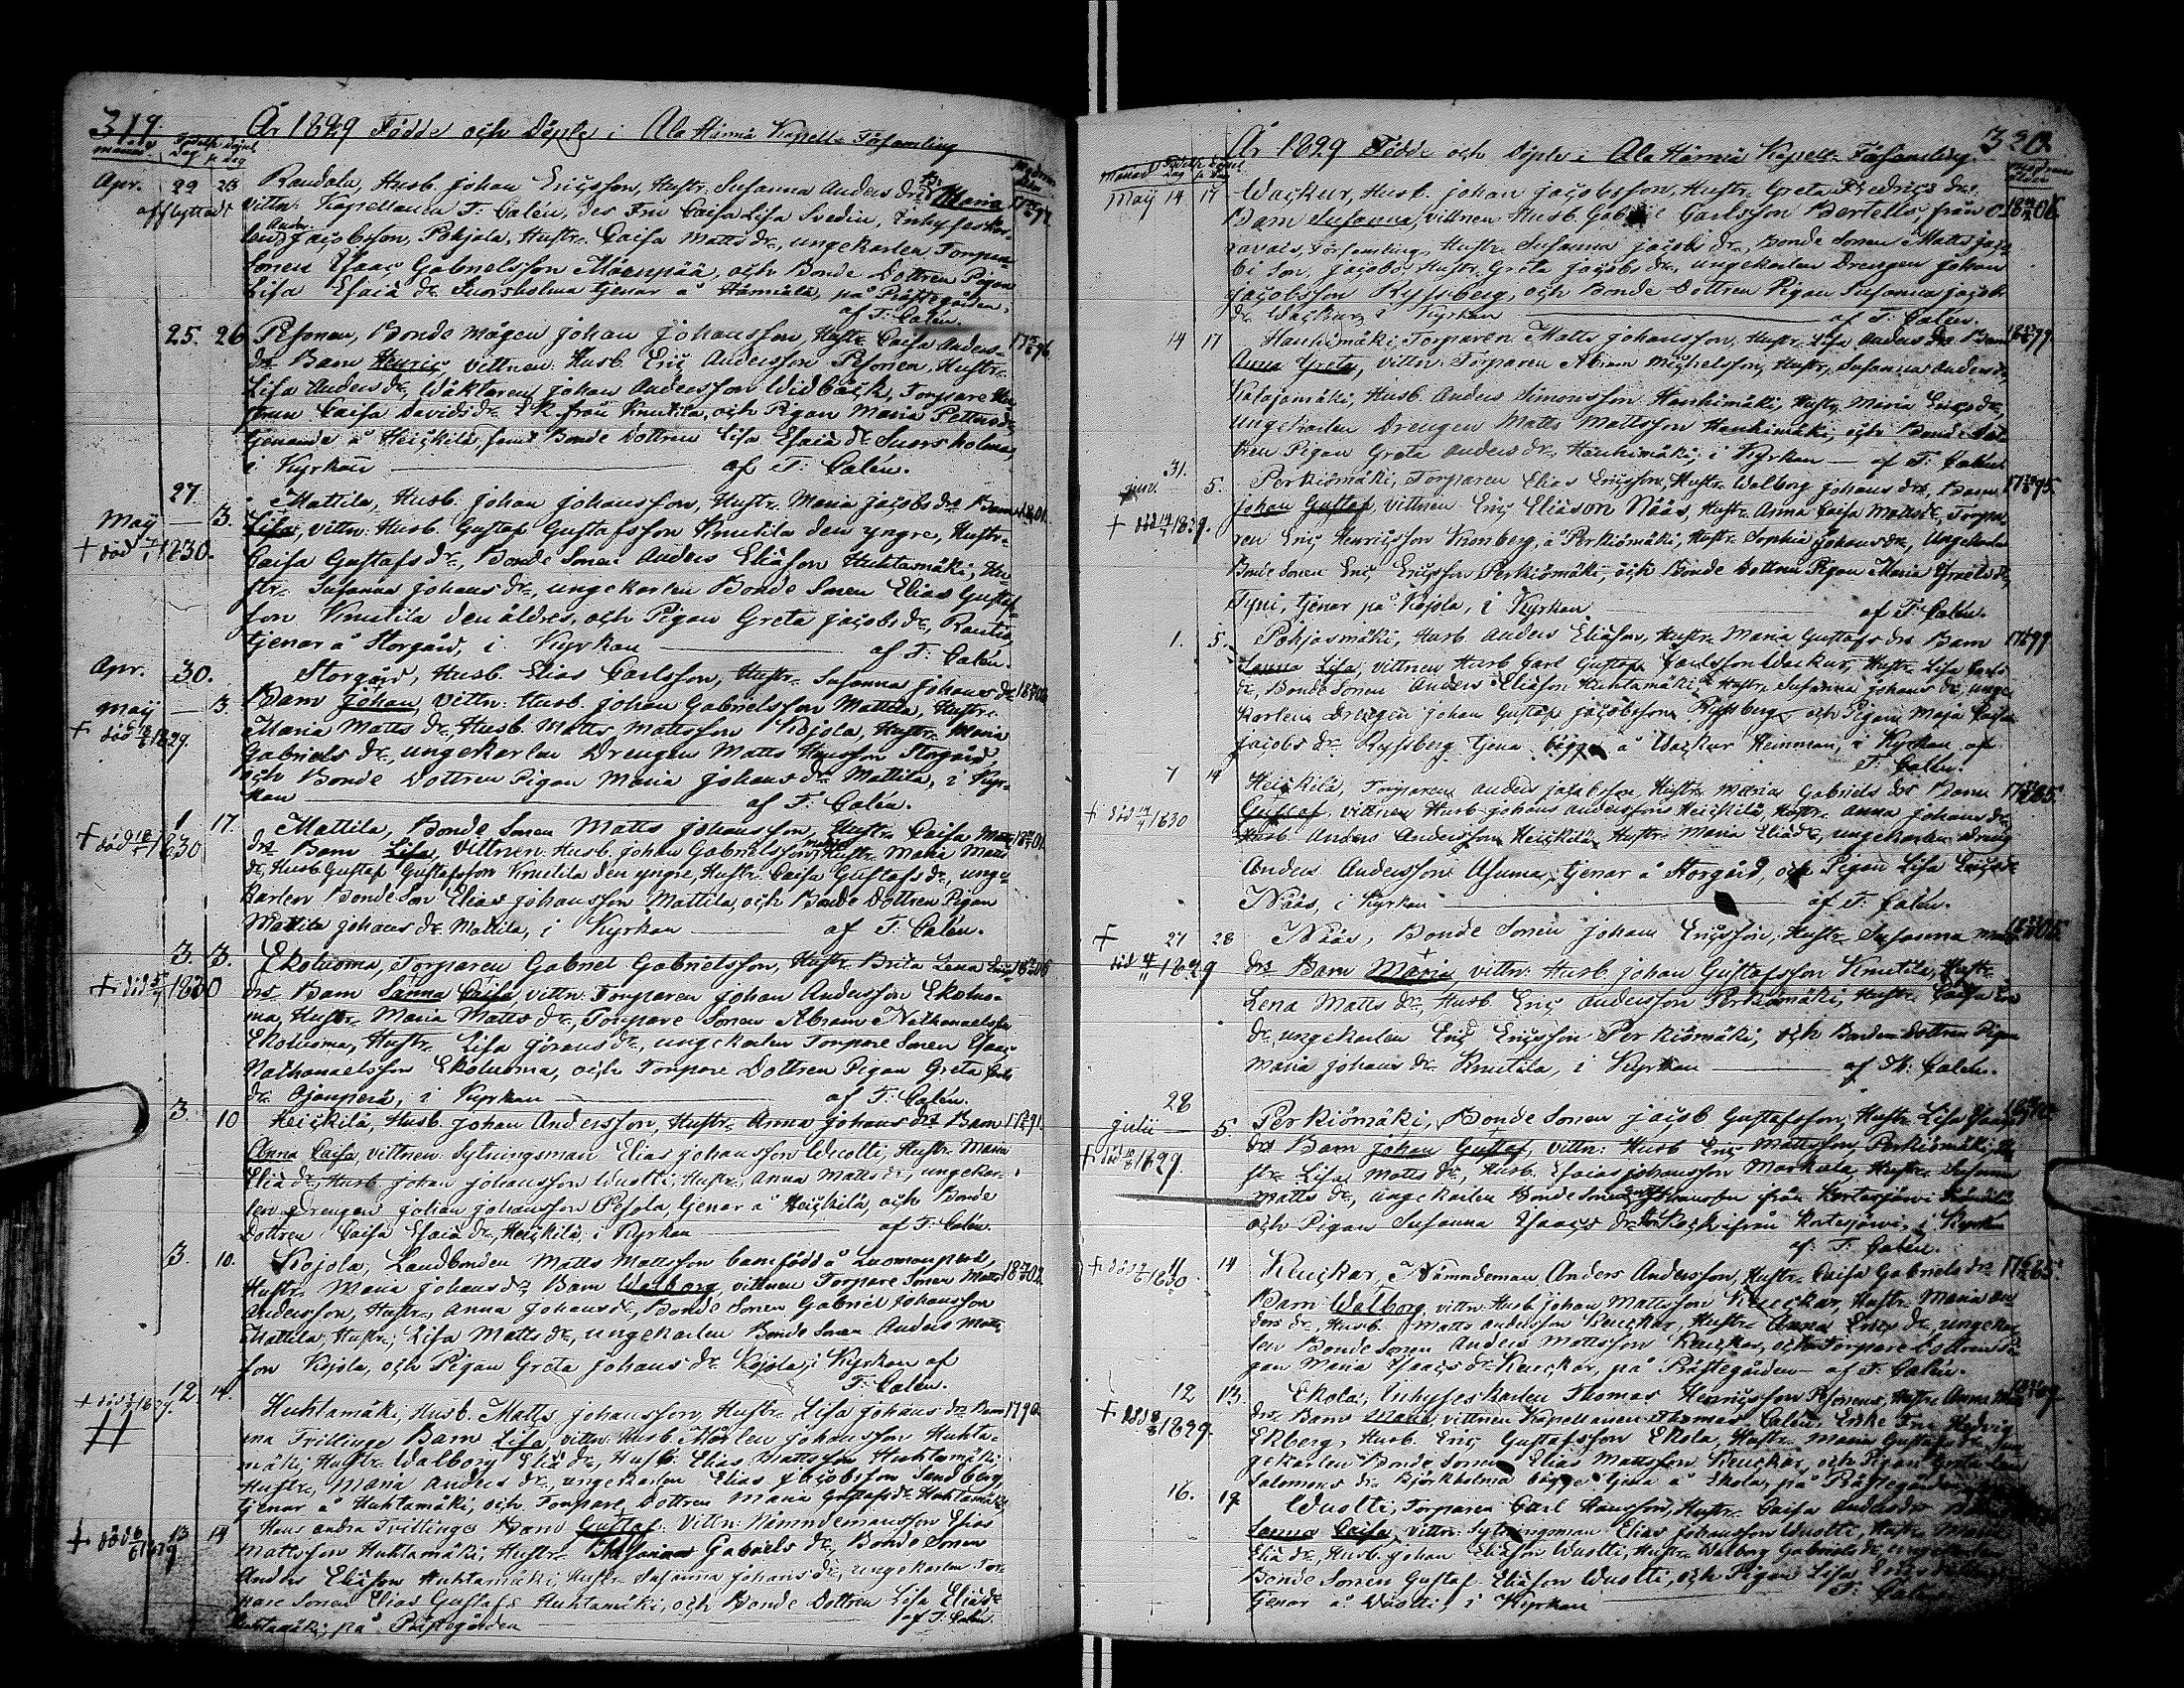 319.
År 1829 Födde och Döpte i Ala Härmä Kapell Församling
Månad Födelse Dag Döpelse Dag
Apr. 22 23 Randala, Husb. Johan Ericsson, Hustr. Susanna Anders dr. Bn. Maria,
afflyttadt vittn: Kapellanen T: Calén, des Fru Caisa Lisa Svedin, Inhyseskar-
len Anders Jacobsson, Pohjola, Hustr. Caisa Matts dr., ungekarlen Torpare
Sonen Esaac Gabrielsson Mäenpää, och Bonde Dottren Pigan
Lisa Esaiä dr. Suorsholma tjenar å Härmälä, på Prästegården,
af T: Calén.
25. 26 Pesonen, Bonde Mågen Johan Johansson, Hustr. Caisa Anders-
dr. Barn Henric, vittnen: Husb. Eric Andersson Pesonen, Hustr.
Lisa Anders dr., Wäktaren Johan Andersson Widbäck, Torpare
Caisa Davids dr. från Knutila, och Pigan Maria Petters dr.
tjenande å Heickilä, samt Bonde Dottren Lisa Esaiä dr. Suorsholma,
i Kyrkan — af T: Calén.
27 Mattila, Husb. Johan Johansson, Hustr. Maria Jacobs dr. Barn 1801.
May — 3. Lisa, vittn: Husb. Gustaf Gustafsson Knutila den yngre, Hustr.
+ död 1830. Caisa Gustafs dr., Bonde Sonen Anders Eliäson Huhtamäki, Hu-
str. Susanna Johans dr., ungekarlen Bonde Sonen Elias Gustaf-
son Knutila den äldres, och Pigan Greta Jacobs dr., Rantio,
tjenar å Storgård, i Kyrkan — af T: Calén.
Apr. 30. Storgård, Husb. Elias Carlsson, Hustr. Susanna Johans dr.
May — 3. Barn Johan, vittn: Husb. Johan Gabrielsson Mattila, Hustr.
+ död 1829. Maria Matts dr., Husb. Matts Mattsson Kojola, Hustr. Maria
Gabriels dr., ungekarlen Drengen Matts Hansson Storgård,
och Bonde Dottren Pigan Maria Johans dr. Mattila, i Kyr-
kan — af T: Calén.
1 17. Mattila, Bonde Sonen Matts Johansson, Hustr. Caisa Matts
+ död 1830 drs Barn Lisa, vittnen: Husb. Johan Gabrielsson Mattila, Hustr. Maria Matts
dr., Husb. Gustaf Gustafsson Knutila den yngre, Hustr. Caisa Gustafs dr., unge-
karlen Bonde Son Elias Johansson Mattila, och Bonde Dottren Pigan
Mattila Johans dr. Mattila, i Kyrkan — af T: Calén.
3. 3. Ekoluoma, Torparen Gabriel Gabrielsson, Hustr. Brita Lena
+ död 1830 drs Barn Sanna Caisa, vittn: Torparen Johan Andersson Ekoluo-
ma, Hustr. Maria Matts dr., Torpare Sonen Abram Nathanaelsson
Ekoluoma, Hustr. Lisa Görans dr., ungekarlen Torpare Sonen Esaac
Nathanaelsson Ekoluoma, och Torpare Dottren Pigan Greta
dr. Ojanperä, i Kyrkan — af T: Calén.
3. 10 Heickilä, Husb. Johan Andersson, Hustr. Anna Johans drs Barn
Anna Caisa, vittnen: Sytningsman Elias Johansson Wuolti, Hustr. Maria
Eliä dr., Husb. Johan Johansson Wuolti, Hustr. Anna Matts dr., ungekar-
len Drengen Johan Johansson Pesola, tjenar å Heickilä, och Bonde
Dottren Caisa Esaiä dr., Heickilä, i Kyrkan — af T: Calén.
3. 10. Kojola, Landbonden Matts Mattsson barnfödd å Luomanperä,
Hustr. Maria Johans dr. Barn Walborg, vittnen Torpare Sonen Matts
Andersson, Hustr. Anna Johans dr., Bonde Sonen Gabriel Johansson
Mattila, Hustr. Lisa Matts dr., ungekarlen Bonde Sonen Anders Matts-
son Kojola, och Pigan Greta Johans dr. Kojola, i Kyrkan af
T: Calén.
+ död 1829. 12. 14. Huhtamäki, Husb. Matts Johansson, Hustr. Lisa Johans drs Barn 1790.
ena Tvillinge Barn Lisa, vittn: Husb. Mårten Johansson Huhta-
mäki, Hustr. Walborg Eliä dr., Husb. Elias Mattsson Huhtamäki,
Hustr. Maria Anders dr., ungekarlen Elias Jacobsson Sandberg,
tjenar å Huhtamäki, och Torpare Dottren Maria Gustafs dr. Huhtamäki,
+ död 1829 13 14 Hans andra Tvillinge Barn Gustaf: Vittn: Nämndemansson Esias
Mattsson Huhtamäki, Hustr. Susanna Gabriels dr., Bonde Sonen
Anders Eliäson Huhtamäki, Hustr. Susanna Johans dr., ungekarlen Tor-
pare Sonen Elias Gustafs Huhtamäki, och Bonde Dottren Lisa Eliä dr.
Huhtamäki, på Prästegården — af T: Calén.
320.
År 1829 Födde och Döpte i Ala Härmä Kapell Församling.
Månad Födelse Dag Döpelse Dag
May 14 17 Wackur, Husb. Johan Jacobsson, Hustr. Greta Fredrics drs
Barn Susanna, vittnen: Husb. Gabriel Carlsson Bertells, från O-
ravais, Församling, Hustr. Susanna Jacobs dr., Bonde Sonen Matts Jaco-
bi Son, Jacobs, Hustr. Greta Jacobs dr., ungekarlen Drengen Johan
Jacobsson Ryssberg, och Bonde Dottren Pigan Susanna Jacobs
dr. Wackur, i Kyrkan — af T: Calén.
14 17 Hanhimäki, Torparen Matts Johansson, Hustr. Lisa Anders drs Barn
Anna Greta, vittn: Torparen Abram Michelsson, Hustr. Susanna Anders dr.,
Katajamäki, Husb. Anders Simonsson Hanhimäki, Hustr. Maria Erics dr.,
ungekarlen Drengen Matts Mattsson Hanhimäki, och Bonde Dot-
tren Pigan Greta Anders dr., Hanhimäki, i Kyrkan — af T: Calén.
31. Perkiömäki, Torparen Elias Ericsson, Hustr. Walborg Johans drs, Barn
Juni 5. Johan Gustaf, vittnen Eric Eliäson Nääs, Hustr. Anna Caisa Matts dr., Torpa-
+ död 1829. ren Eric Henricsson Kronberg, å Perkiömäki, Hustr. Sophia Johans dr., Ungekarlen
Bonde Sonen Eric Ericsson Perkiömäki, och Bonde Dottren Pigan Maria Israels dr.
Typi, tjenar på Kojola, i Kyrkan — af T: Calén.
1. 5. Pohjasmäki, Husb. Anders Eliäson, Hustr. Maria Gustafs drs Barn
Sanna Lisa, vittnen Husb. Carl Gustaf Carlsson Wackur, Hustr. Lisa Carls
dr., Bonde Sonen Anders Eliäson Huhtamäki, Hustr. Susanna Johans dr., unge-
karlen Drengen Johan Gustaf Jacobsson Ryssberg, och Pigan Maja Caisa
Jacobs dr. Ryssberg tjena bägge å Wackur Heinman, i Kyrkan af
T: Calén.
7 14 Heickilä, Torparen Anders Jacobsson, Hustr. Maria Gabriels drs Barn
+ död 1830 Gustaf, vittnen Husb. Johans Anderssons Heickilä, Hustr. Anna Johans dr.,
Husb. Anders Andersson Heickilä, Hustr. Maria Eliä dr., ungekarlen Dreng
Anders Andersson Asuma, tjenar å Storgård, och Pigan Lisa Erics dr.
Näås, i Kyrkan — af T: Calén.
+ 27 28 Näås, Bonde Sonen Johan Ericsson, Hustr. Susanna Matts
död 1829 drs Barn Maria, vittn: Husb. Johan Gustafsson Knutila, Hustr.
Lena Matts dr., Husb. Eric Andersson Perkiömäki, Hustr. Caisa
dr., ungekarlen Eric Ericsson Perkiömäki, och Bonden Dottren Pigan
Maria Johans dr. Knutila, i Kyrkan — af T: Calén.
28 Perkiömäki, Bonde Sonen Jacob Gustafsson, Hustr. Lisa Esaacs
Julii 5. drs Barn Johan Gustaf, vittn: Husb. Eric Mattsson Perkiömäki, Hu-
+ död 1829. str. Lisa Matts dr., Husb. Esaias Johansson Markala, Hustr. Susanna
Matts dr., ungekarlen Bonde Sonen Johansson från Kortesjärvi
och Pigan Susanna Esaacs dr. från Kortesjärvi, i Kyrkan
af T: Calén.
+ död 1830 11 14 Keuckar, Nämndeman Anders Andersson, Hustr. Caisa Gabriels drs
Barn Walborg, vittn: Husb. Johan Mattsson Keuckar, Hustr. Maria An-
ders dr., Husb. Matts Andersson Keuckar, Hustr. Anna Erics dr., ungekar-
len Bonde Sonen Anders Mattsson Keuckar, och Torpare Dottren Pi-
gan Maria Esaacs dr. Keuckar, på Prästegården — af T: Calén.
12 13. Ekola, Inhyseskarlen Thomas Henricsson Pesonens, Hustr. Anna
+ död 1829. drs Barn Maria, vittnen Kapellanen Thomas Calén, Enke Fru Hedvig
Ekberg, Husb. Eric Gustafsson Ekola, Hustr. Maria Gustafs dr., un-
gekarlen Bonde Sonen Elias Mattsson Keuckar, och Pigan Greta Lena
Salomons dr. Björkholma bägge tjena å Ekola, på Prästegården
16. 19. Wuolti, Torparen Carl Hansson, Hustr. Caisa Anders dr. Barn
Sanna Caisa, vittn: Sytningsman Elias Johansson Wuolti, Hustr. Maria
Eliä dr., Husb. Johan Eliäson Wuolti, Hustr. Walborg Gabriels dr., ungekarlen
Bonde Sonen Gustaf Eliäson Wuolti, och Pigan Lisa Erics
tjenar å Wuolti, i Kyrkan — T: Calén